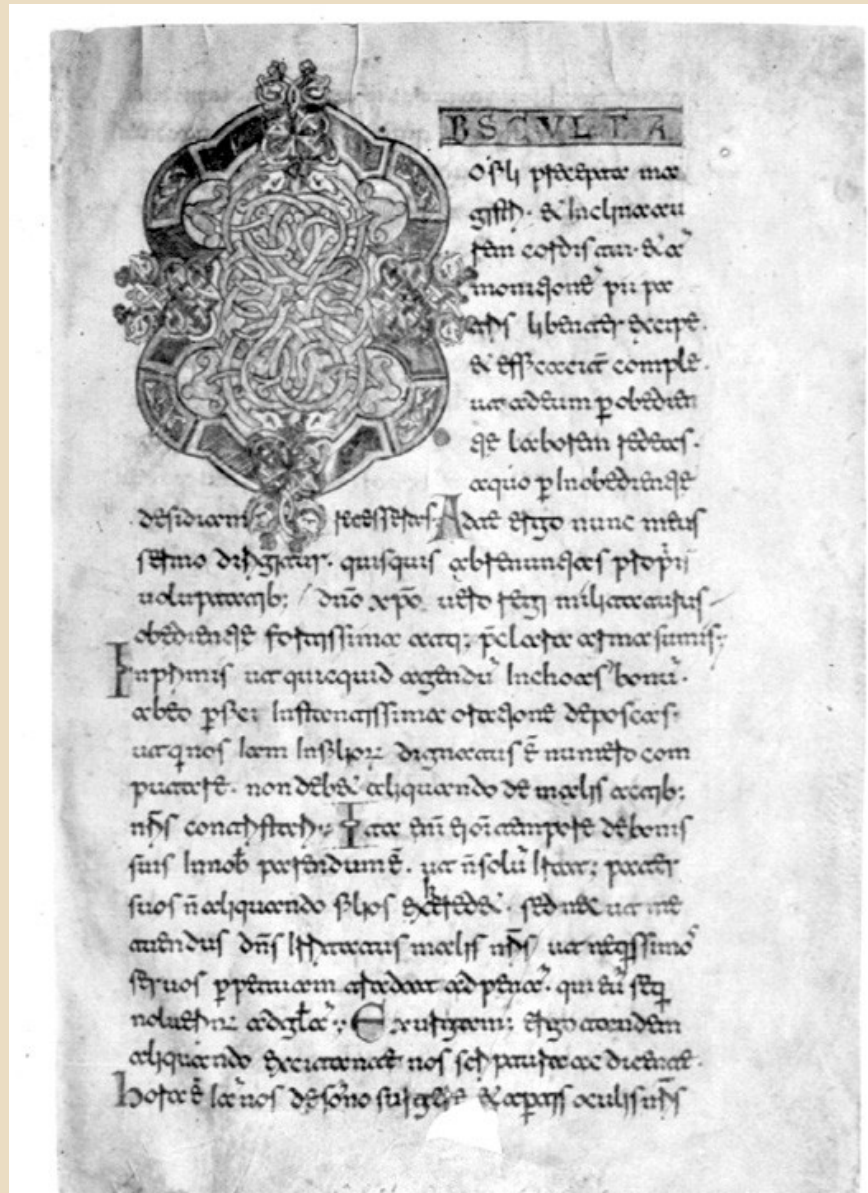 BSCVLTA
o fili precepta ma
gistri · & inclina au
rem cordis tui · & a᷒
monitione᷒ pii pa
tris libenter excipe ·
& efficacit̄ comple ·
ut ad eum p̄ obedien
tie laborem redeas ·
a quo p̄ inobedientie
desidiam recesseras · Ad te ergo nunc meus
sermo dirigitur · quisquis abrenuntias proprii
uoluptatib; dn̄o xp̄o uero regi militaturus
obedientie fortissima atq; p̄clara arma sumis;
Inprimis ut quicquid agendū inchoas bonū ·
ab eo p̄fici instantissima oratione deposcas ·
ut qi nos iam in filioꝝ dignatus ē numero com
putare · non debet aliquando de malis actib;
nr̄is contristari · Ita eni᷒ ei om̄i tempore de bonis
suis in nob̄ parendum ē · ut n̄ solū irat; pater
suos n̄ aliquando filios exheredet · sed nec ut me
tuendus dn̄s irritatus malis nr̄is ut neqissimos
seruos p̄petuam tradat ad penā · qui eū seqi
noluerin̄ ad gl̄ā · Exurgam; ergo tandem
aliquando excitante nos scriptura ac dicente ·
hora ē iā nos de sōno surgere & ap̄tis oculis nr̄is